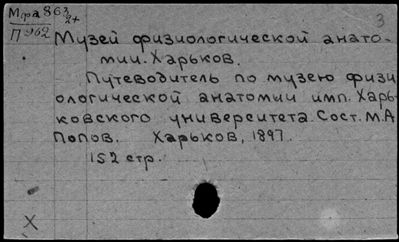 Мфа 863/2+
П 962
3
Музей физиологической анато-
мии. Харьков.
Путеводитель по музею физи
ологической анатомии имп. Харь-
ковского университета. Сост. М.А
Попов. Харьков, 1897.
152 стр.
X